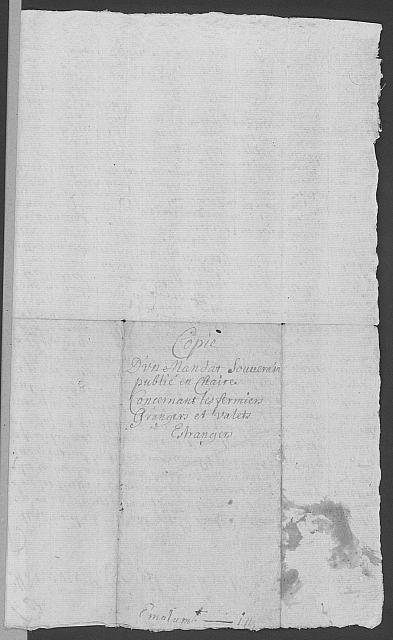 Copie
D'vn Mandat Souverain
publié en Chaire
Concernant les fermiers
Grangers et valets
Estrangers
Emolumt